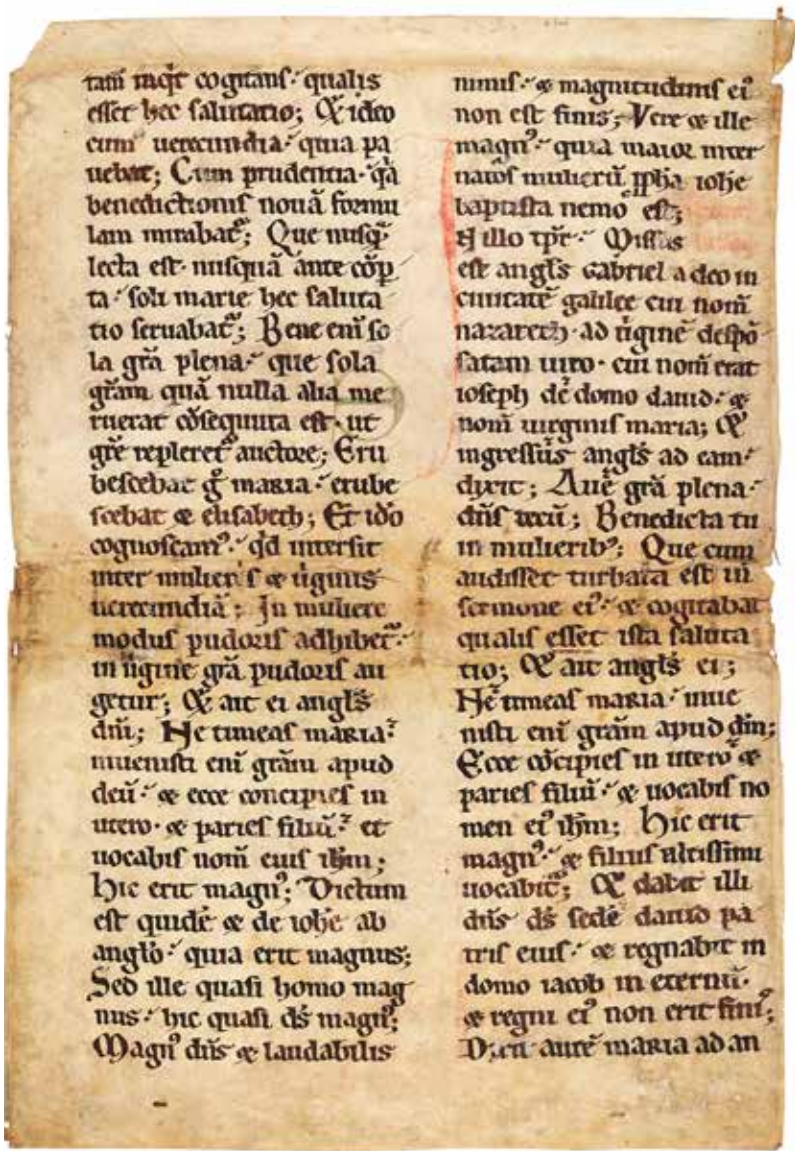 tam inq̄t cogitans · qualis
esset hec salutatio; Et ideo
cum uerecundia · quia pa
uebat; Cum prudentia · q̄a
benedictionis nouā formu
lam mirabat᷑; Que nusq̄
lecta est · nusquā ante cōp̄
ta · soli marie hec saluta
tio seruabat᷑; Bene eni᷑ so
la gr̄a plena · que sola
gr̄am quā nulla alia me
ruerat cōsequuta est · ut
gr̄e repleret᷑ auctore; Eru
bescebat g̊ maria · erube
scebat & elisabeth; Et id̊o
cognoscam᷒ · qd̄ intersit
inter mulieris & u̇ginis
uerecundiā; In muliere
modus pudoris adhibet᷑ ·
in u̇gine gr̄a pudoris au
getur; Et ait ei angl̄s
dn̄i; Ne timeas maria ·
inuenisti eni᷑ gr̄am apud
deū · & ecce concipies in
utero · & paries filiū · et
uocabis nom̄ eius ih̄m;
hic erit magn᷒; Dictum
est quidē & de ioh̄e ab
angl̄o · quia erit magnus;
Sed ille quasi homo mag
nus · hic quasi d̄s magn᷒;
Magn᷒ dn̄s & laudabilis
nimis · & magnitudinis ei᷒
non est finis; Vere & ille
magn᷒ · quia maior inter
natos mulierū p̄pha ioh̄e
baptista nemo est;
N illo tp̄r · Missus
est angl̄s gabriel a deo in
ciuitatē galilee cui nom̄
nazareth · ad u̇ginē despō
satam uiro · cui nom̄ erat
ioseph de domo dauid · &
nom̄ uirginis maria; Et
ingressus angl̄s ad eam ·
dixit; Aue gr̄a plena ·
dn̄s tecū; Benedicta tu
in mulierib᷒; Que cum
audisset turbata est in
sermone ei᷒ · & cogitabat
qualis esset ista saluta
tio; Et ait angl̄s ei;
Ne timeas maria · inue
nisti eni᷑ gr̄am apud dm̄;
Ecce cōcipies in utero &
paries filiū · & uocabis no
men ei᷒ ih̄m; Hic erit
magn᷒ · & filius altissimi
uocabit᷑; Et dabit illi
dn̄s d̄s sedē dauid pa
tris eius · & regnabit in
domo iacob in eternū ·
& regni ei᷒ non erit finis;
Dixit autē maria ad an